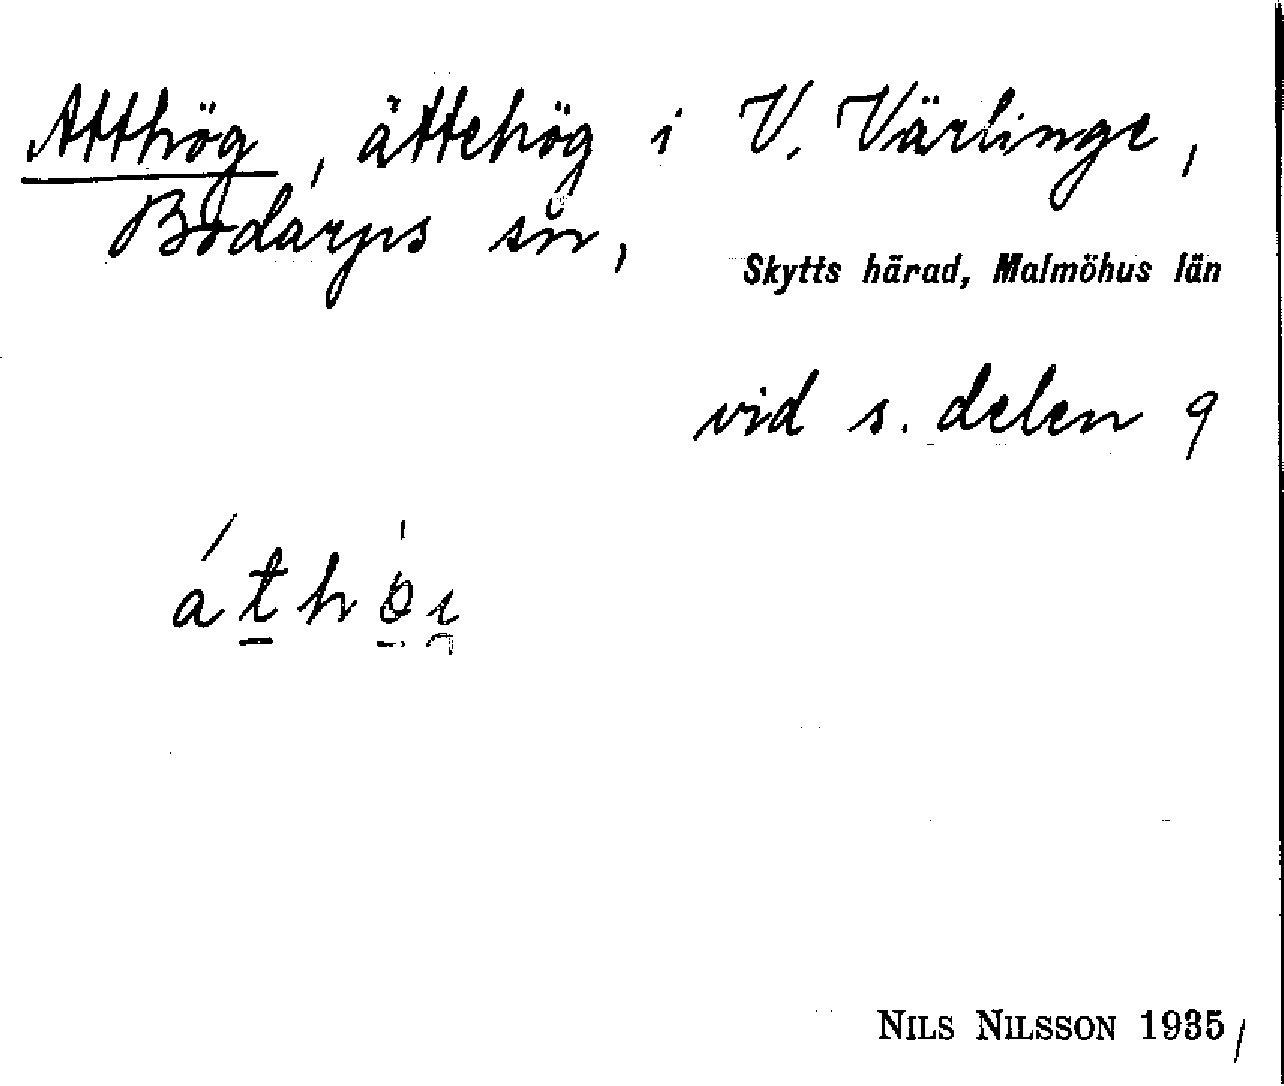 Atthög, ättehög i V. Värlinge,
Bodarps sn,
Skytts härad, Malmöhus län
vid s. delen 9
áthöi
NILS NILSSON 1935 /